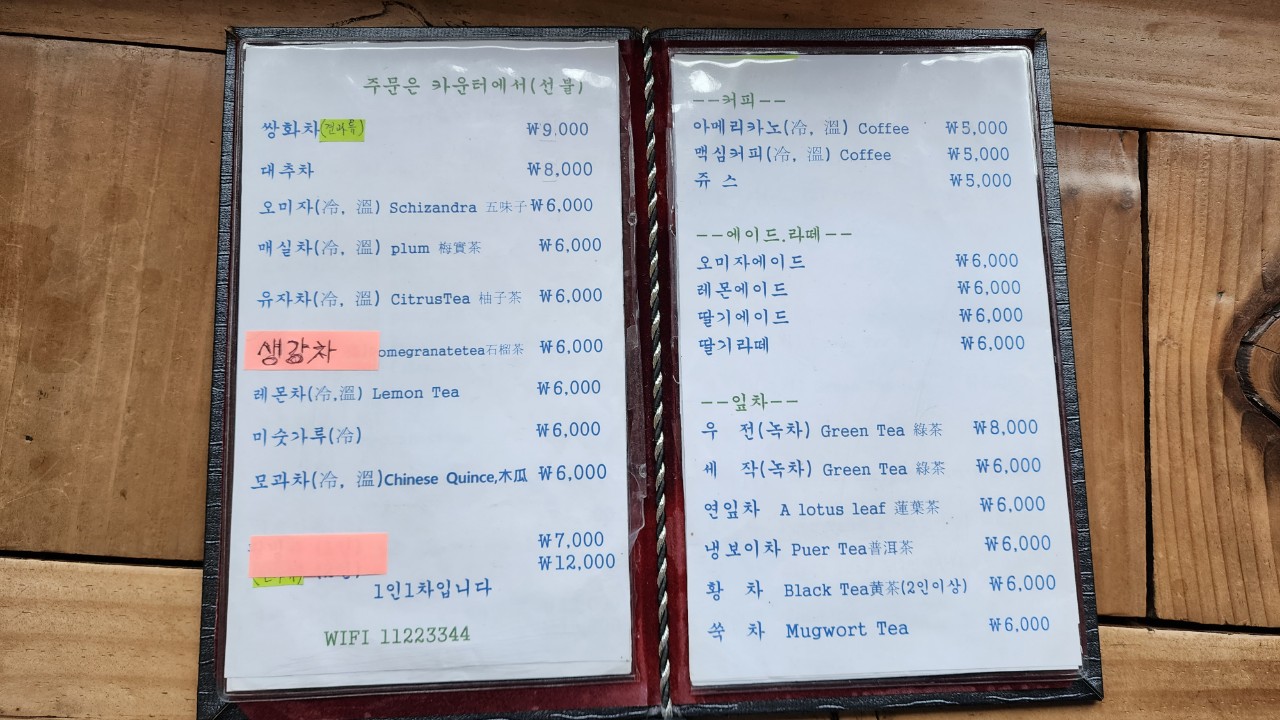 주문은 카운터에서(선불)
쌍화차 ₩9,000
대추차 ₩8,000
오미자(冷, 溫) Schizandra 五味子 ₩6,000
매실차(冷, 溫) plum 梅實茶 ₩6,000
유자차(冷, 溫) CitrusTea 柚子茶 ₩6,000
생강차 omegranatetea石榴茶 ₩6,000
레몬차(冷,溫) Lemon Tea ₩6,000
미숫가루(冷) ₩6,000
모과차(冷, 溫)Chinese Quince,木瓜 ₩6,000
₩7,000
₩12,000
1인1차입니다
WIFI 11223344
--커피--
아메리카노(冷, 溫) Coffee ₩5,000
맥심커피(冷, 溫) Coffee ₩5,000
쥬 스 ₩5,000
--에이드.라떼--
오미자에이드 ₩6,000
레몬에이드 ₩6,000
딸기에이드 ₩6,000
딸기라떼 ₩6,000
--잎차--
우 전(녹차) Green Tea 綠茶 ₩8,000
세 작(녹차) Green Tea 綠茶 ₩6,000
연잎차 A lotus leaf 蓮葉茶 ₩6,000
냉보이차 Puer Tea普洱茶 ₩6,000
황 차 Black Tea黄茶(2인이상) ₩6,000
쑥 차 Mugwort Tea ₩6,000